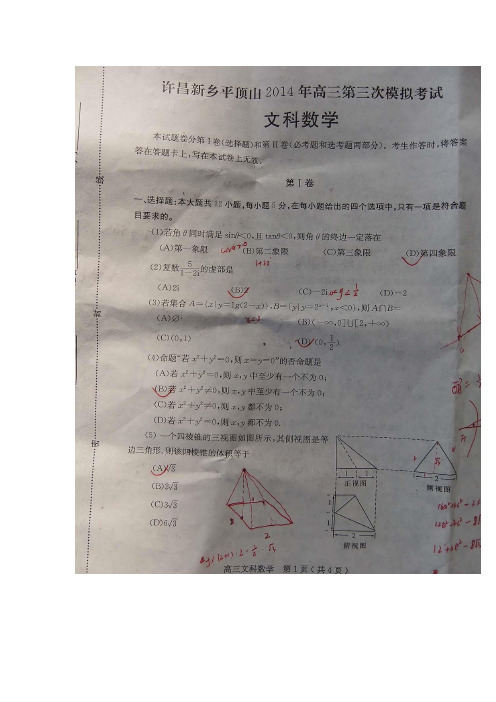 许昌新乡平顶山 2014 年高三第三次模拟考试
文科数学
本试题卷分第Ⅰ卷(选择题)和第Ⅱ卷(必考题和选考题两部分)。考生作答时,将答案
答在答题卡上,写在本试卷上无效.
第Ⅰ卷
一、选择题:本大题共12小题,每小题5分,在每小题给出的四个选项中,只有一项是符合题
目要求的。
(1)若角θ同时满足 sinθ<0,且 tanθ<0,则角θ的终边一定落在
(A)第一象限 (B)第二象限 (C)第三象限 (D)第四象限
(2)复数5/(1-2i)的虚部是
1+2i
(A)2i (B)2 (C)-2i (D)-2
(3)若集合 A={x|y=lg(2-x)},B={y|y=
(A)∅ (B)(-∞,0]∪[2,+∞)
(C)(0,1) (D)(0,1/2)
(4)命题“若 x²+y²=0,则 x=y=0”的否命题是
(A)若 x²+y²=0,则 x,y 中至少有一个不为 0;
(B)若 x²+y²≠0,则 x,y 中至少有一个不为 0;
(C)若 x²+y²≠0,则 x,y 都不为 0;
(D)若 x²+y²=0,则 x,y 都不为 0.
(5)一个四棱锥的三视图如图所示,其侧视图是等
边三角形.则该四棱锥的体积等于
(A)√3
(B)2√3
(C)3√3
(D)6√3
1 1
正视图
2
侧视图
1
1
2
俯视图
2
高三文科数学 第 1 页(共 4 页)